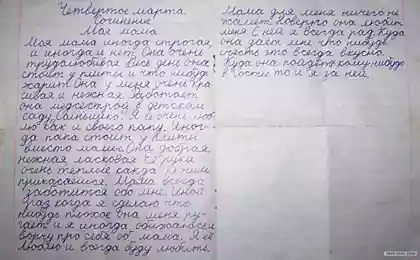 Четвертое марта
Сочинение
Моя мама
Моя мама иногда строгая,
а иногда и нет. Она очень
трудолюбивая весь день она
стоит у плиты и что нибудь
жарит. Она у меня очень кра
сивая и нежная. Работает
она медсестрой в детском
саду Солнышко. Я её очень люб
лю как и своего папу. Иног-
да папа стоит у плиты
вместо мамы. Она добрая,
нежная ласковая. Её руки
очень теплые когда к ним
прикасаешся. Мама всегда
заботится обо мне. Иной
раз когда я сделаю что
нибудь плохое она меня ру-
гает и я иногда обижаюсь и
ворчу про себя об мама. Я её
люблю и всегда буду любить.
Мама для меня ничего не
жалеет наверно она любит
меня. С ней я всегда рад. Куда
она даёт мне что нибудь
съесть это всегда вкусно.
Куда она пойдёт к кому нибудь
в гости то и я за ней.